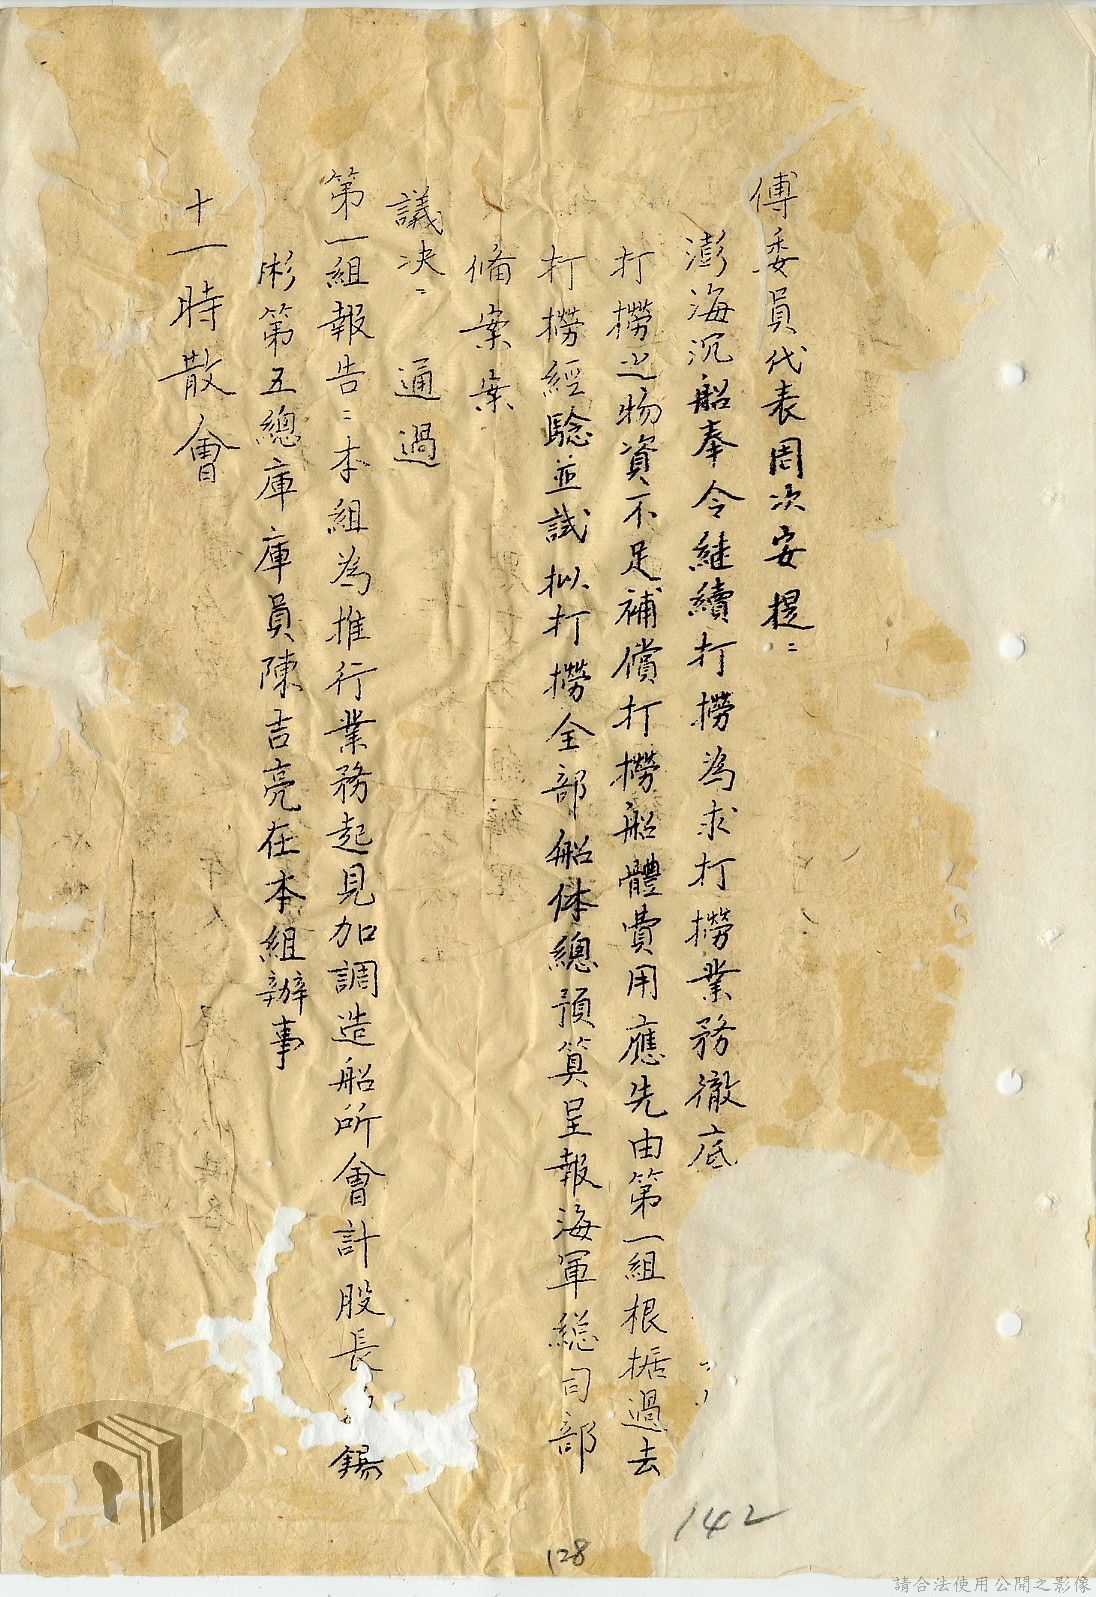 傅委員代表周次安提：
澎海沉船奉令継續打撈為求打撈業務徹底
打撈之物資不足補償打撈船體費用應先由第一組根据過去
打撈經驗並試拟打撈全部船体總預算呈報海軍総司部
俻案案
議决：通過
第一組報告：本組為推行業務起見加調造船所會計股長錫
彬第五總庫庫員陳吉亮在本組辦事
十一時散會
142
128
請合法使用公開之影像